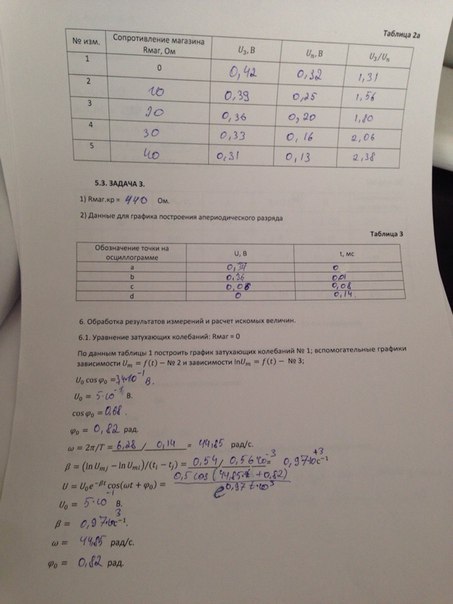 Таблица 2а
№ изм. Сопротивление магазина Rмаг, Ом U₃, В Uₙ, В U₃/Uₙ
1 0 0,42 0,32 1,31
2 10 0,39 0,25 1,56
3 20 0,36 0,20 1,80
4 30 0,33 0,16 2,06
5 40 0,31 0,13 2,38
5.3. ЗАДАЧА 3.
1) Rмаг.кр = 440 Ом.
2) Данные для графика построения апериодического разряда
Таблица 3
Обозначение точки на осциллограмме U, В t, мс
a 0,34 0
b 0,26 0,01
c 0,08 0,08
d 0 0,14
6. Обработка результатов измерений и расчет искомых величин.
6.1. Уравнение затухающих колебаний: Rмаг = 0
По данным таблицы 1 построить график затухающих колебаний № 1; вспомогательные графики
зависимости Uₘ = f(t) – № 2 и зависимости lnUₘ = f(t) – № 3;
U₀ cos φ₀ = 3,4·10⁻¹ В.
U₀ = 5·10⁻¹ В.
cos φ₀ = 0,68.
φ₀ = 0,82 рад.
ω = 2π/T = 6,28 / 0,14 = 44,85 рад/с.
β = (ln Uₘⱼ – ln Uₘᵢ)/(tᵢ – tⱼ) = 0,54 / 0,56·10⁻³ = 0,97·10⁺³ с⁻¹
U = U₀e^(–βt) cos(ωt + φ₀) = 0,5 cos(44,85·t + 0,82) / e^(0,97·t·10³)
U₀ = 5·10⁻¹ В.
β = 0,97·10³ с⁻¹.
ω = 44,85 рад/с.
φ₀ = 0,82 рад.